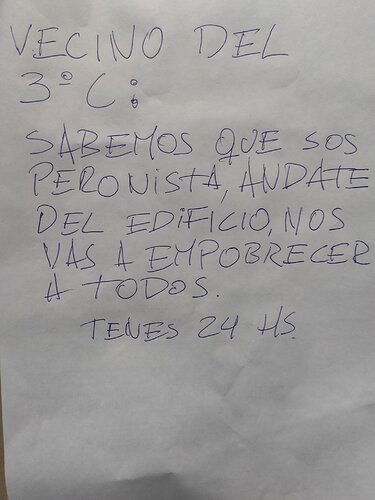 VECINO DEL
3º C:
SABEMOS QUE SOS
PERONISTA, ANDATE
DEL EDIFICIO, NOS
VAS A EMPOBRECER
A TODOS.
TENES 24 HS.